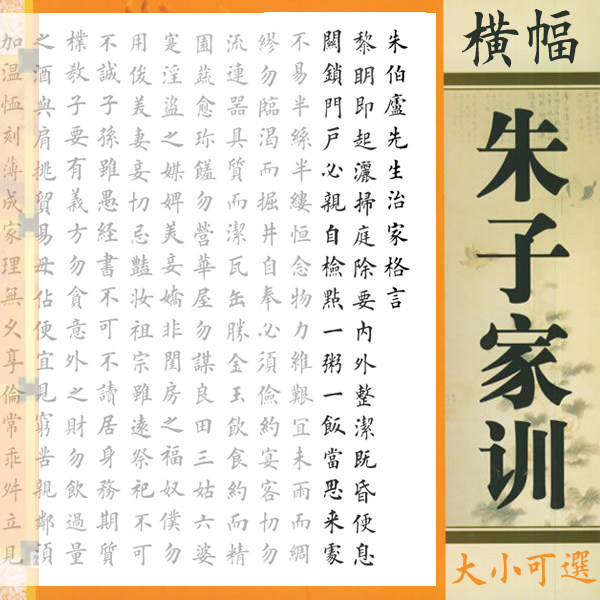 橫幅
朱子家训
大小可選
朱伯廬先生治家格言
黎眀即起灑掃庭除要内外整潔既昏便息
關鎖門戶必親自檢點一粥一飯當思来處
不易半絲半縷恒念物力維艱宜未雨而綢
繆勿臨渴而掘井自奉必須儉約宴客切勿
流連器具質而潔瓦缶勝金玉飲食約而精
園蔬愈珎饈勿營華屋勿謀良田三姑六婆
寔淫盜之媒婢美妾嬌非閨房之福奴僕勿
用俊美妻妾切忌豔妝祖宗雖遠祭祀不可
不誠子孫雖愚經書不可不讀居身務期質
樸教子要有義方勿貪意外之財勿飲過量
之酒與肩挑貿易毋佔便宜見窮苦親鄰須
加温恤刻薄成家理無久享倫常乖舛立見